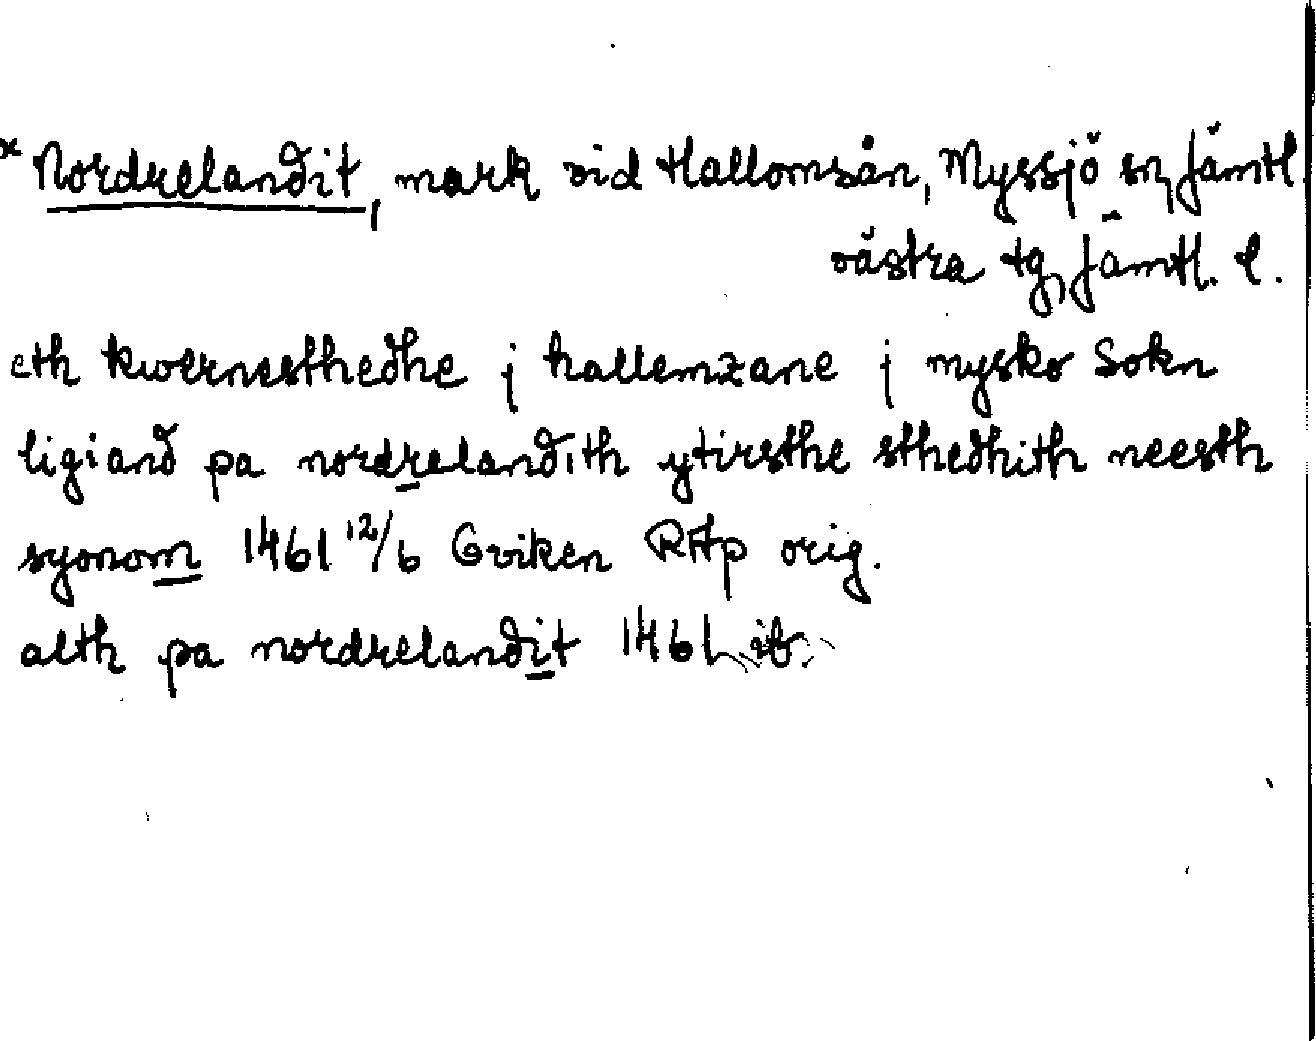 * Nordrelandit, mark vid Hallomsån, Myssjö sn, Jämtl.
västra tg, Jämtl. l.
eth kwernesthedhe j hallemzane j mysko Sokn
ligiand pa nordrelandith ytirsthe sthedhith neesth
syonom 1461 12/6 Gviken RAp orig.
alth pa nordrelandit 1461 ib.